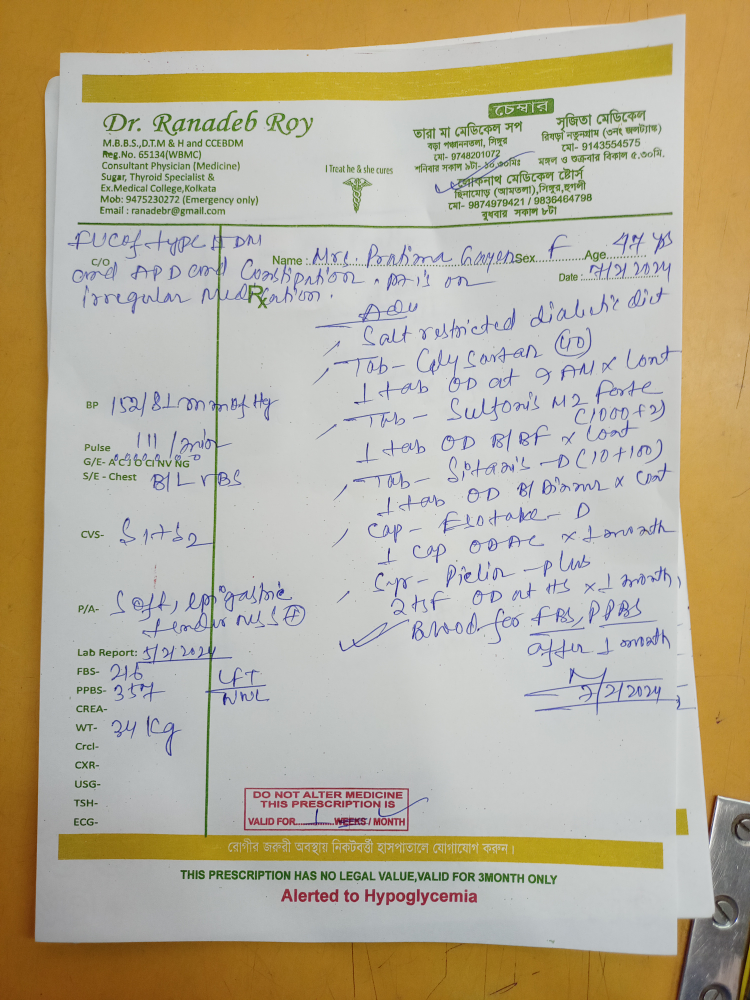 Dr. Ranadeb Roy
M.B.B.S.,D.T.M & H and CCEBDM
Reg.No. 65134(WBMC)
Consultant Physician (Medicine)
Sugar, Thyroid Specialist &
Ex.Medical College,Kolkata
Mob: 9475230272 (Emergency only)
Email : ranadebr@gmail.com
I Treat he & she cures
চেম্বার
তারা মা মেডিকেল সপ
বড়া পঞ্চাননতলা, সিঙ্গুর
মো- 9748201072
শনিবার সকাল ৯টা- ১০.৩০মিঃ
সৃজিতা মেডিকেল
রিষড়া নতুনগ্রাম (৩নং জলট্যাঙ্ক)
মো- 9143554575
মঙ্গল ও শুক্রবার বিকাল ৫.৩০মি.
লোকনাথ মেডিকেল ষ্টোর্স
ছিনামোড় (আমতলা),সিঙ্গুর,হুগলী
মো- 9874979421 / 9836464798
বুধবার সকাল ৮টা
FUC of type II DM
C/O
and APD and Constipation. Pt is on
irregular Medication.
Rx
Name : Mrs. Pratima Gayen Sex F Age 47 yrs
Date : 7/2/2024
Adv
Salt restricted diabetic diet
Tab - Gly Sartan (40)
1 tab OD at 9 AM x Cont
Tab - Sulfonis M2 Forte
(1000+2)
1 tab OD B/BF x Cont
Tab - Sitanis - D (10+100)
1 tab OD B/Dinner x Cont
Cap - Esotake - D
1 cap OD AC x 1 month
Syr - Pielin - Plus
2 tsf OD at HS x 1 month,
Blood for FBS, PPBS
after 1 month
7/2/2024
BP 152/81 mm of Hg
Pulse 111/min
G/E- A C J O CI NV NG
S/E - Chest B/L VBS
CVS- S1+S2
P/A- Soft, epigastric
tenderness +
Lab Report: 5/2/2024
FBS- 216
PPBS- 357
LFT
WNL
CREA-
WT- 34 Kg
Crcl-
CXR-
USG-
TSH-
ECG-
DO NOT ALTER MEDICINE
THIS PRESCRIPTION IS
VALID FOR 1 WEEKS / MONTH
রোগীর জরুরী অবস্থায় নিকটবর্তী হাসপাতালে যোগাযোগ করুন।
THIS PRESCRIPTION HAS NO LEGAL VALUE,VALID FOR 3MONTH ONLY
Alerted to Hypoglycemia